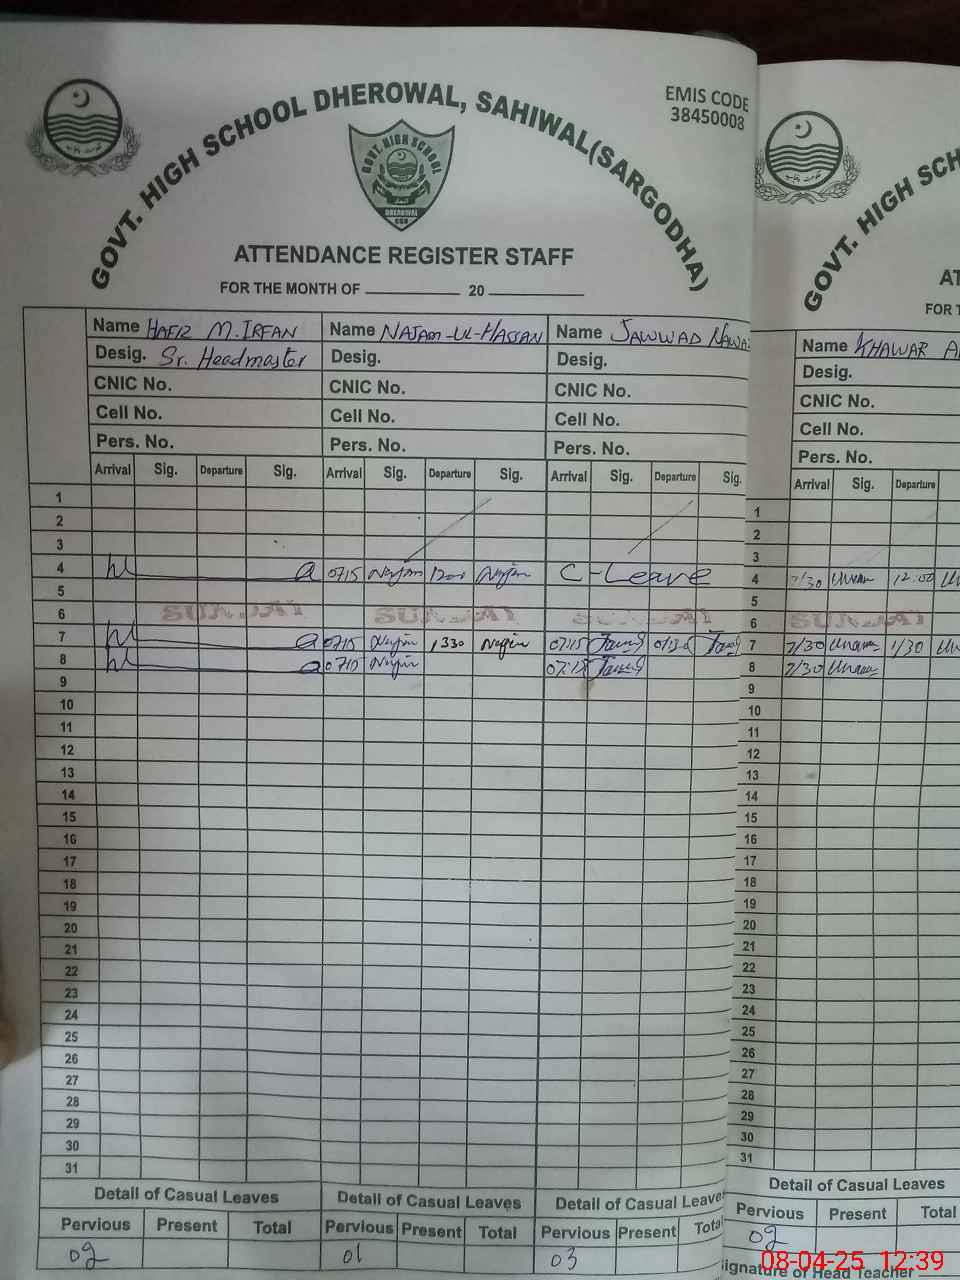 GOVT. HIGH SCHOOL DHEROWAL, SAHIWAL(SARGODHA)
EMIS CODE
38450008
GOVT. HIGH SCHOOL
DHEROWAL
ATTENDANCE REGISTER STAFF
FOR THE MONTH OF 20
Name HAFIZ M. IRFAN Name NAJAM-UL-HASSAN Name JAWWAD NAWA
Desig. Sr. Headmaster Desig. Desig.
CNIC No. CNIC No. CNIC No.
Cell No. Cell No. Cell No.
Pers. No. Pers. No. Pers. No.
Arrival Sig. Departure Sig. Arrival Sig. Departure Sig. Arrival Sig. Departure Sig.
1
2
3
4 hl a 0715 Najam 1200 Najam C-Leave
5
6 SUNDAY SUNDAY SUNDAY
7 hl a 0715 Najam 1330 Najam 07:15 Jawad 01:30 Jawad
8 hl a 0715 Najam 07:15 Jawad
9
10
11
12
13
14
15
16
17
18
19
20
21
22
23
24
25
26
27
28
29
30
31
Detail of Casual Leaves Detail of Casual Leaves Detail of Casual Leave
Pervious Present Total Pervious Present Total Pervious Present Total
02 01 03
GOVT. HIGH SCH
AT
FOR T
Name KHAWAR A
Desig.
CNIC No.
Cell No.
Pers. No.
Arrival Sig. Departure
1
2
3
4 7/30 12:00
5
6 SUNDAY
7 7/30 1/30
8 7/30
9
10
11
12
13
14
15
16
17
18
19
20
21
22
23
24
25
26
27
28
29
30
31
Detail of Casual Leaves
Pervious Present Total
02
Signature of Head Teacher
08-04-25 12:39